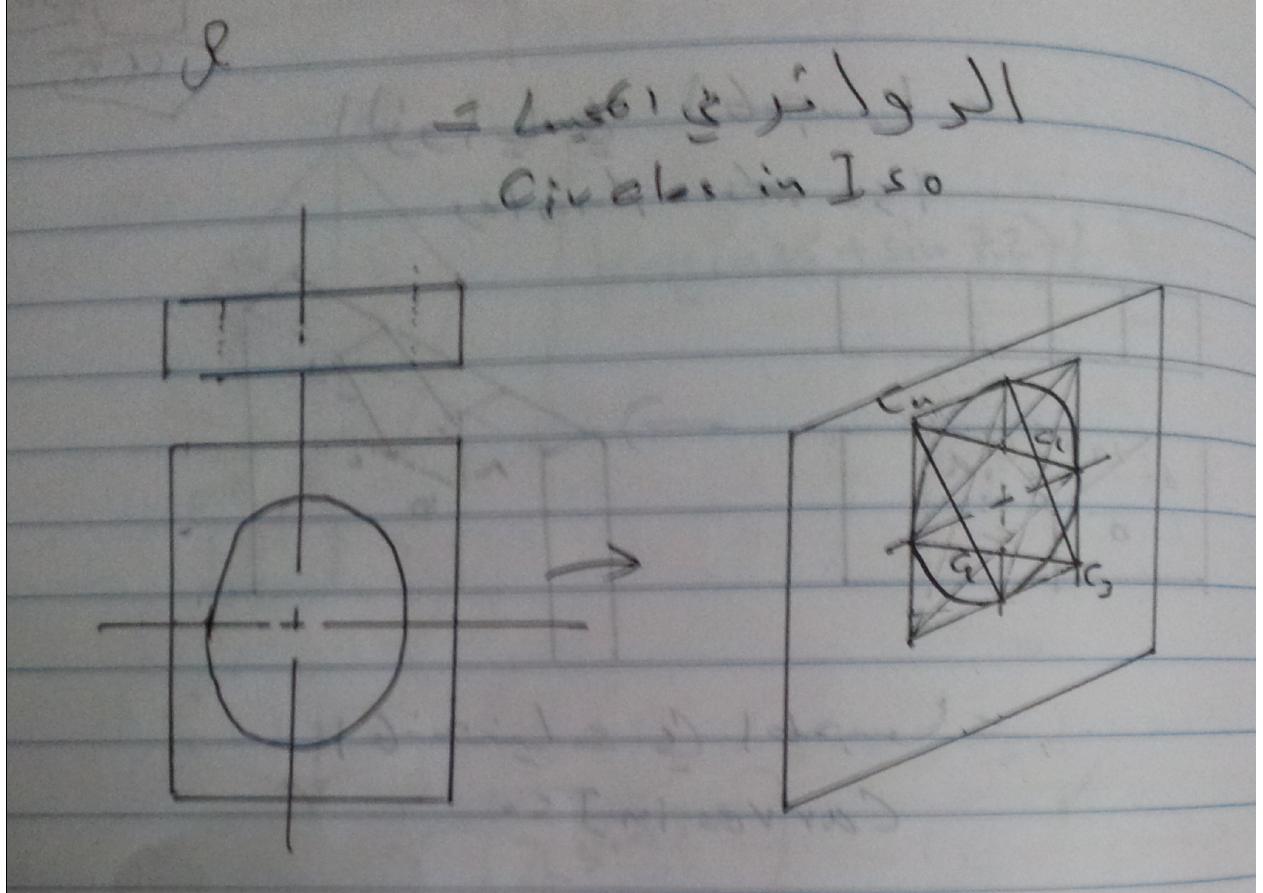 الدوائر في الايسو =
Circles in Iso
C4
C1
C2
C3